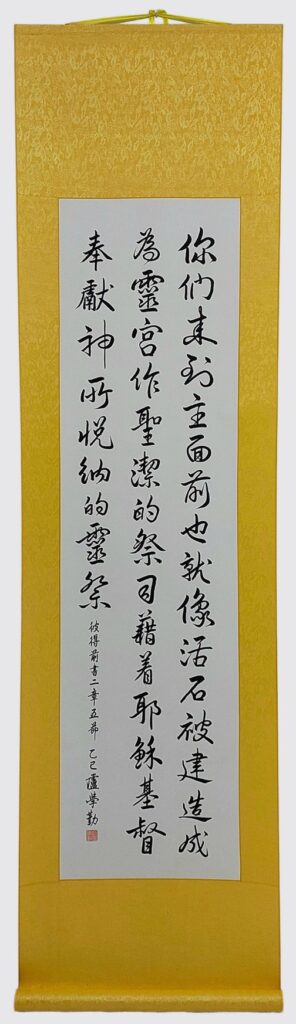 你们来到主面前也就像活石被建造成
為靈宮作聖潔的祭司藉着耶穌基督
奉獻神所悦納的靈祭
彼得前書二章五節 乙巳 盧學勤